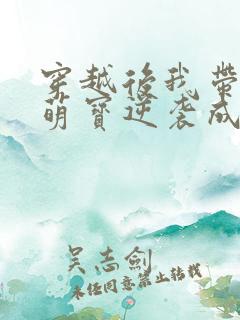 穿越後我帶
萌寶逆袭成
吴志劍
未经同意禁止转载